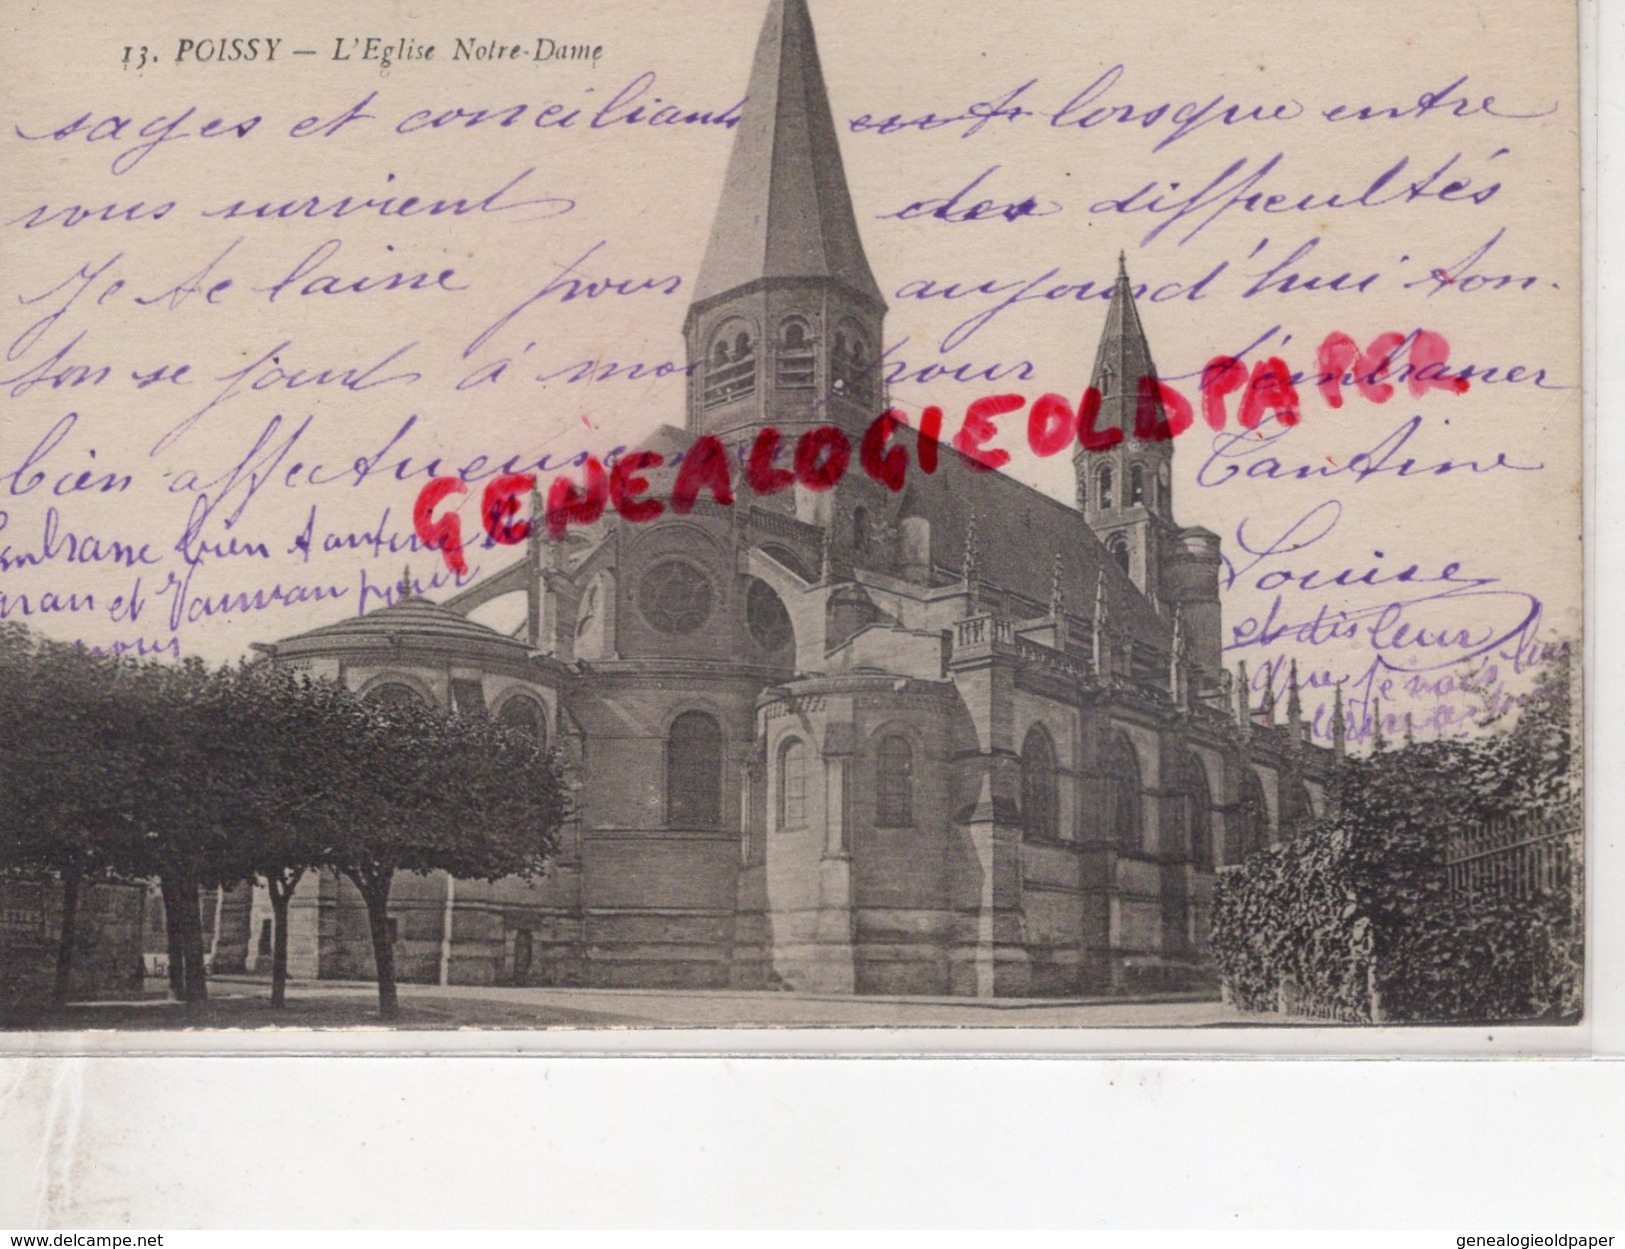 13. POISSY — L'Eglise Notre-Dame
sages et conciliants lorsque entre
vous survient des difficultés
Je te laisse pour aujourd'hui ton-
ton se joint à moi pour t'embrasser
bien affectueusement Tantine
Louise
embrasse bien tantine
et pour
nous
et dis leur
que je vais leur
GENEALOGIEOLDPAPER
delcampe.net
genealogieoldpaper